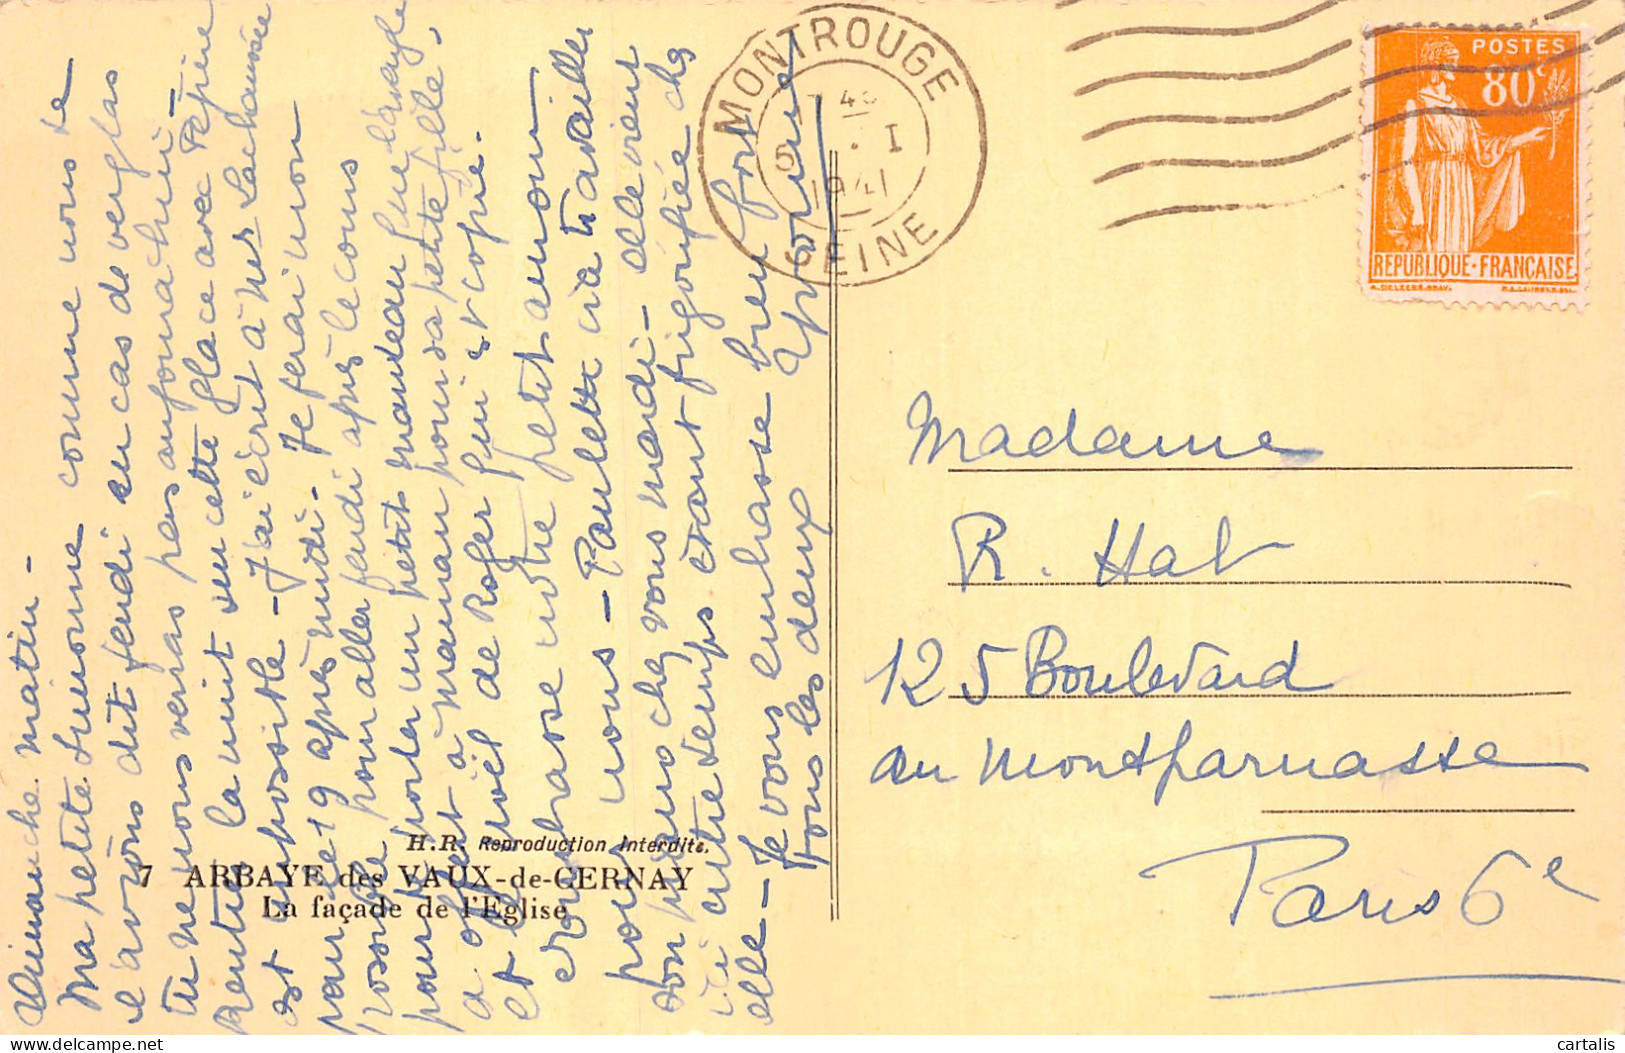 Dimanche matin -
Ma petite Simonne comme nous te
l'avions dit jeudi en cas de verglas
tu ne nous verras pas aujourd'hui -
Rentrer la nuit sur cette glace avec Pépère
est impossible - J'ai écrit à Mer Lachaussée
pour le 19 après midi - Je ferai mon
possible pour aller jeudi après le cours
pour porter un petit manteau que l'oncle
a offert à maman pour sa petite fille,
et le de Roger qui est copié.
embrasse notre petit amour
pour nous - Paulette ira travailler
chez vous mardi - elle vient
ici entre temps étant frigorifiée chez
elle - Je vous embrasse bien fort
tous les deux
H.R. Reproduction Interdite.
7 ABBAYE des VAUX-de-CERNAY
La façade de l'Eglise
MONTROUGE
I
1941
SEINE
POSTES
80c
REPUBLIQUE-FRANCAISE
Madame
R. Hat
125 Boulevard
du Montparnasse
Paris 6e
cartalis